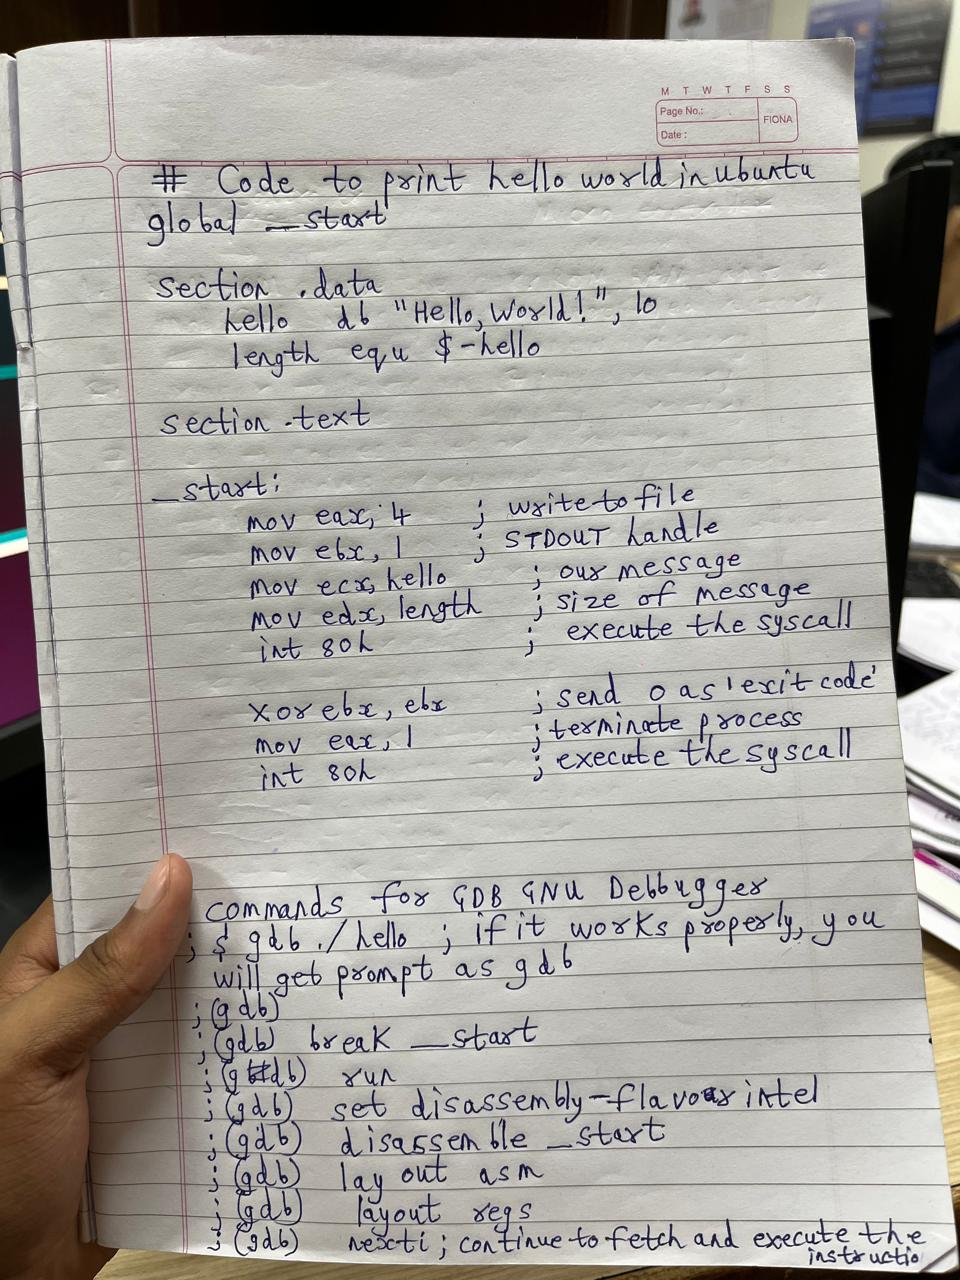 M T W T F S S
Page No.:
FIONA
Date :
# Code to print hello world in ubuntu
global _start
section .data
hello db "Hello, World!", 10
length equ $-hello
section .text
_start:
mov eax, 4 ; write to file
mov ebx, 1 ; STDOUT handle
mov ecx, hello ; our message
mov edx, length ; size of message
int 80h ; execute the syscall
xor ebx, ebx ; send 0 as 'exit code'
mov eax, 1 ; terminate process
int 80h ; execute the syscall
commands for GDB GNU Debbugger
; $ gdb ./hello ; if it works properly, you
will get prompt as gdb
; (gdb)
; (gdb) break _start
; (gdb) run
; (gdb) set disassembly-flavour intel
; (gdb) disassemble _start
; (gdb) layout asm
; (gdb) layout regs
; (gdb) nexti ; continue to fetch and execute the
instructio